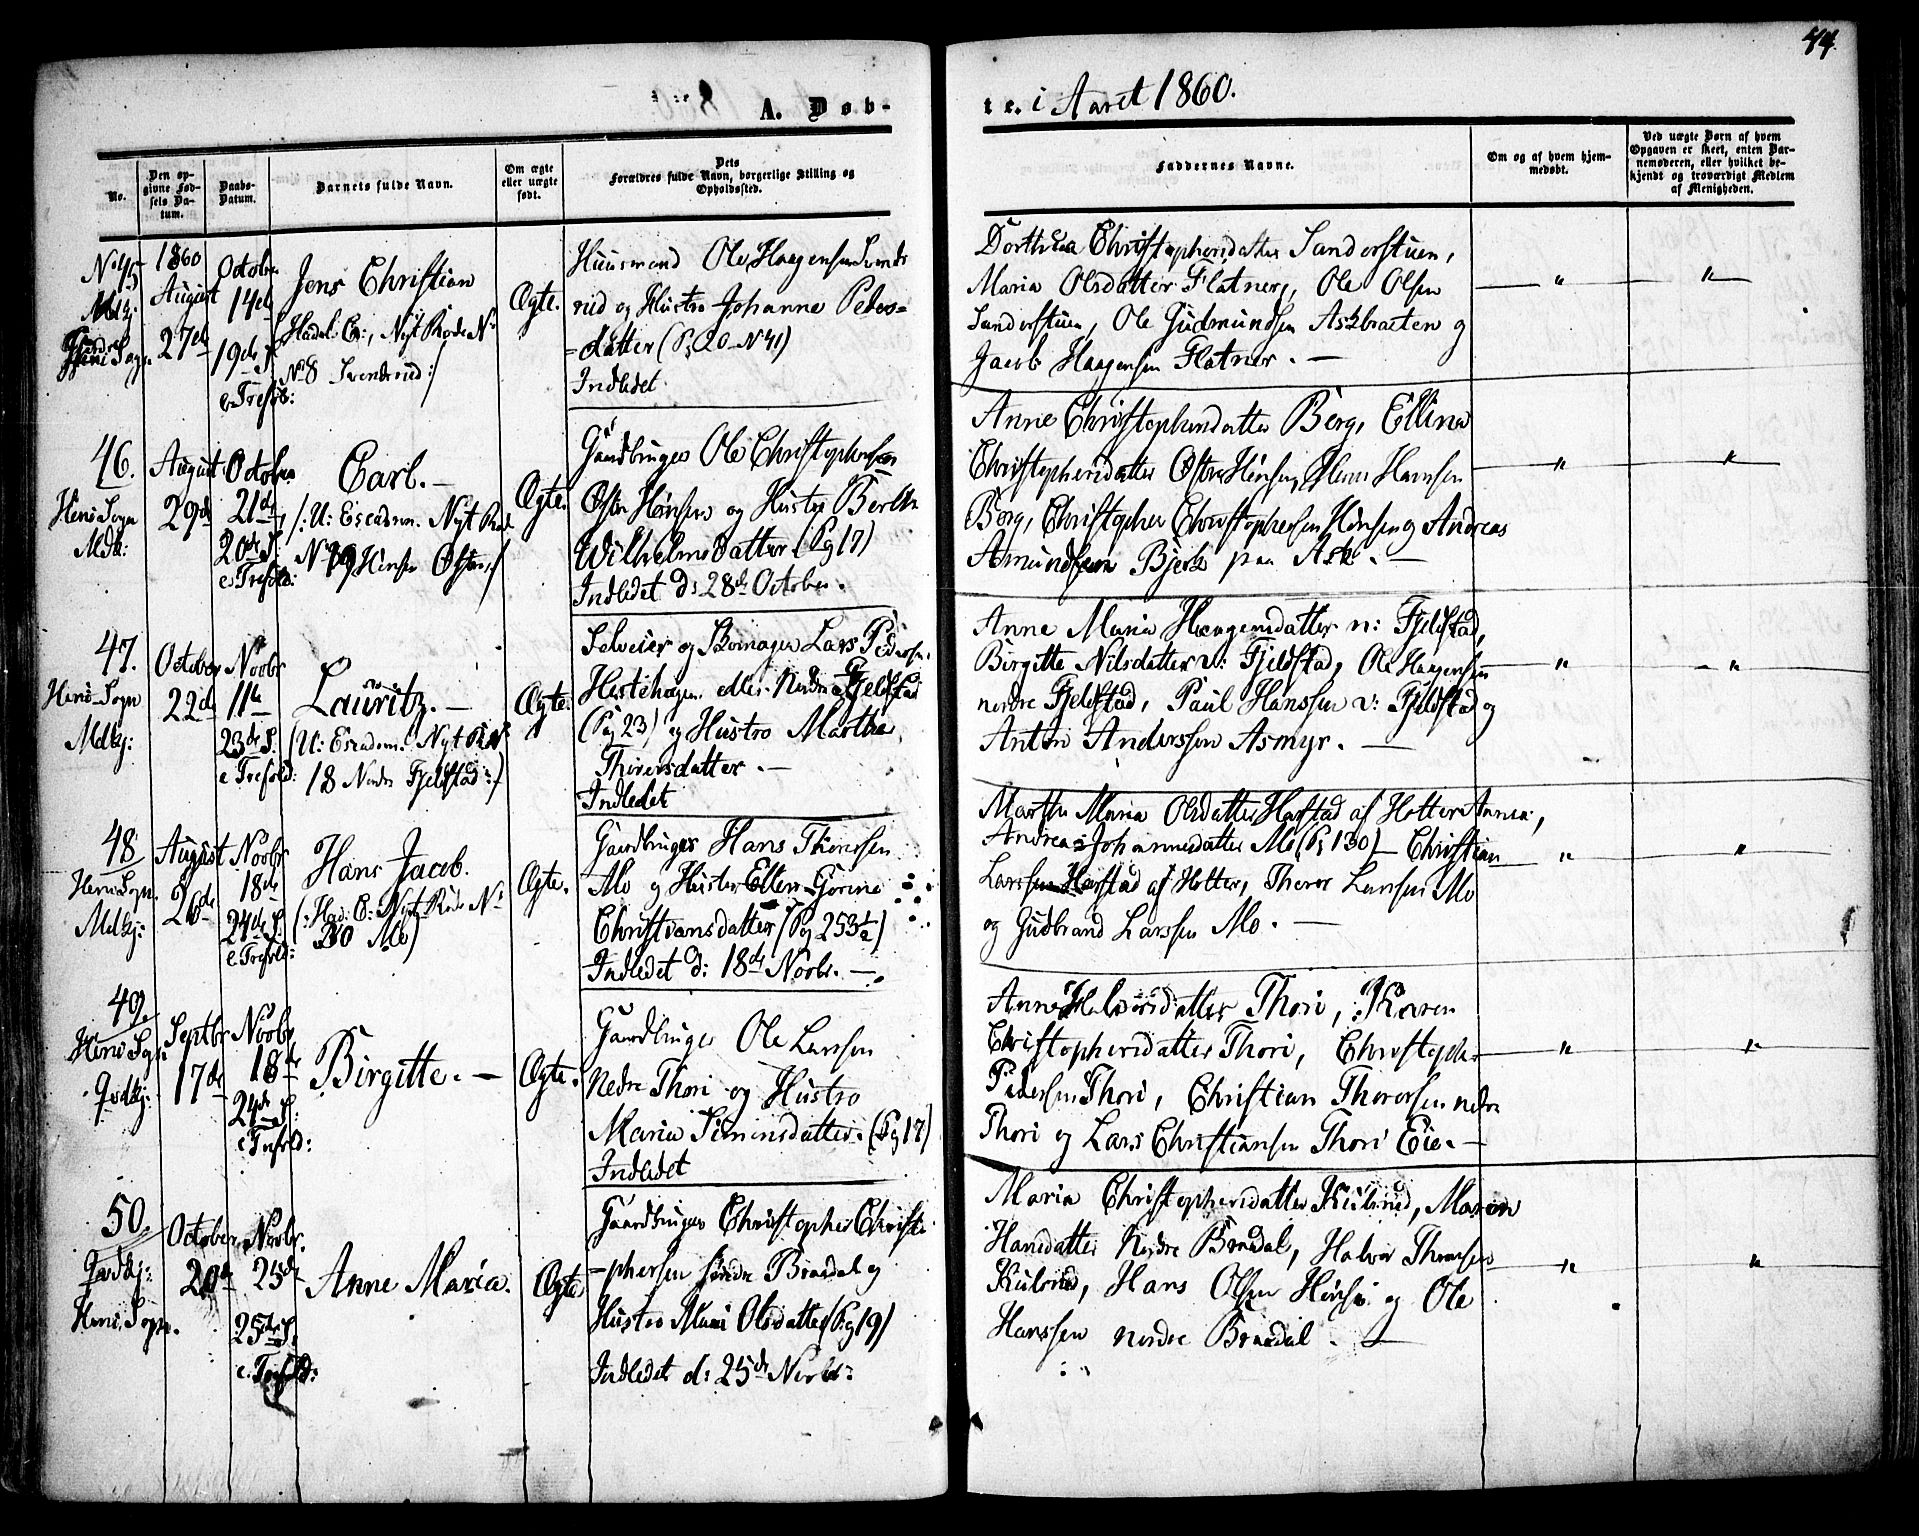 44.
A. Døb-
te. i Aaret 1860.
No.
Den op-
givne Fød-
sels Da-
tum.
Daabs-
Datum.
Barnets fulde Navn.
Om ægte
eller uægte
født.
Dets
Forældres fulde Navn, borgerlige Stilling og
Opholdssted.
Faddernes Navne.
Om og af hvem hjem-
medøbt.
Ved uægte Børn af hvem
Opgaven er skeet, enten Bar-
nemoderen, eller hvilket be-
kjendt og troværdigt Medlem
af Menigheden.
No 45
Mdkj:
Sogn
1860
August
27de
October
14de
19de S.
e. Trefold:
Jens Christian
Nyt Rode No
No 8 Svendsrud:/
Ægte.
Huusmand Ole Haagensen Svends
rud og Hustro Johanne Peders=
=datter (Pg 20 - N 41)
Indledet
Dorthea Christophersdatter Sandorstuen,
Maria Olsdatter Flatner, Ole Olsen
Sandorstuen, Ole Gudmundsen Askbraaten og
Jacob Haagensen Flatner. —
— " —
— " —
46.
Heni Sogn
Mdk:
August
29de
October
21de
20de S.
e. Trefold:
Carl. —
/: U: Escadron. Nyt Rode
No 19 Hønsen Østre:/
Ægte.
Gaardbruger Ole Christophersen
Østre Hønsen og Hustro Berthe
Wilhelmsdatter (Pg 17)
Indledet d: 28de October.
Anne Christophersdatter Berg, Elline
Christophersdatter Østre Hønsen, Hans Hanssen
Berg, Christopher Christophersen Hønsen og Andreas
Amundsen Bjerk paa Ask. —
— " —
— " —
47.
Heni Sogn
Mdkj:
October
22de
Novbr
11te
23de S.
e Trefold:
Lauritz. —
(U: Escadron. Nyt Rode
18 Nordre Fjeldstad:)
Ægte.
Selveier og Skomager Lars Pedersen
Hestehagen eller Nordre Fjeldstad
(Pg 23) og Hustro Marthe
Thorersdatter. —
Indledet
Anne Maria Haagensdatter n: Fjeldstad,
Birgitte Nilsdatter v: Fjeldstad, Ole Haagensen
nordre Fjeldstad, Paul Hanssen v: Fjeldstad og
Anton Anderssen Asmyr. —
— " —
— " —
48.
Heni Sogn.
Mdkj:
August
26de
Novbr
18de
24de S.
e Trefold:
Hans Jacob.
(: Had: E: Nyt Rode No
30 Mo)
Ægte.
Gaardbruger Hans Thorersen
Mo og Hustro Ellen Gorine
Christiansdatter (Pg 253 1/2)
Indledet d: 18de Novbr. —
Marthe Maria Olsdatter Harstad af Holter, Anne,
Andrea Johannesdatter Mo (Pg 130) — Christian
Larssen Harstad af Holter, Thoror Larssen Mo
og Gudbrand Larssen Mo. —
— " —
"
49.
Heni Sogn
Gjødkj:
Septbr
17de
Novbr
18de
24de S.
e Trefold:
Birgitte. —
Ægte.
Gaardbruger Ole Larssen
Nedre Thori og Hustro
Maria Simensdatter. (Pg 17)
Indledet
Anne Halvorsdatter Thori, Karen
Christophersdatter Thori, Christopher
Pedersen Thori, Christian Thorersen nedre
Thori og Lars Christiansen Thori Eie. —
— " —
"
50.
Gjødkj:
Heni Sogn.
October
20de
Novbr.
25de
25de S.
e. Trefold:
Anne Maria.
Ægte
Gaardbruger Christopher Christo-
-phersen søndre Braadal og
Hustro Mari Olsdatter (Pg 19)
Indledet d: 25de Novbr:
Maria Christophersdatter Kulsrud, Maren
Hansdatter Nordre Braadal, Halvor Thorersen
Kulsrud, Hans Olsen Hønsi og Ole
Hanssen nordre Braadal. —
— " —
"